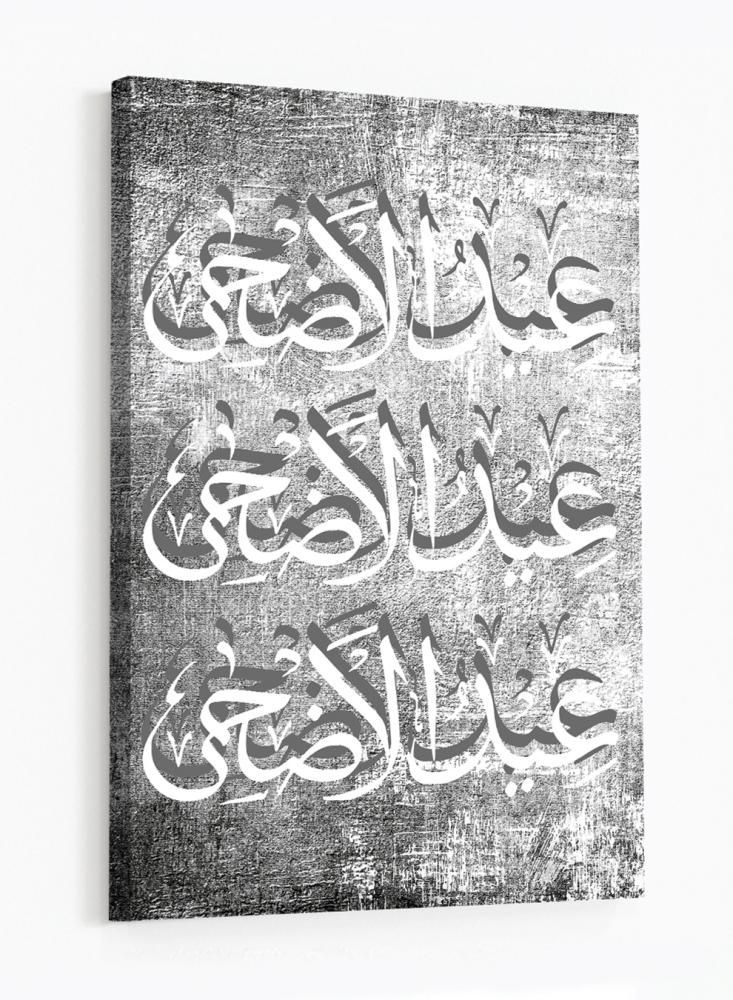 عيد الأضحى
عيد الأضحى
عيد الأضحى